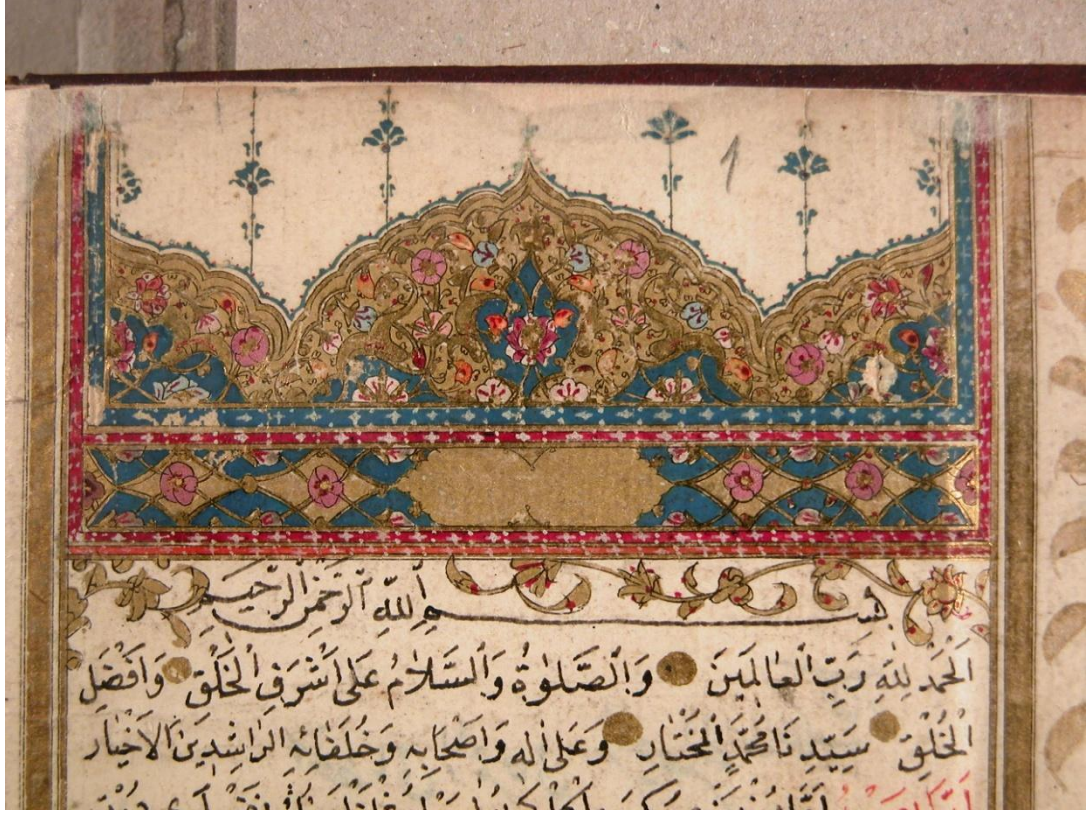 1
بسم الله الرحمن الرحيم
اَلْحَمْدُ لِلّٰهِ رَبِّ الْعٰالَمِينَ وَالصَّلٰوةُ وَالسَّلاٰمُ عَلٰى اَشْرَفِ الْخَلْقِ وَاَفْضَلِ
الْخُلُقِ سَيِّدِنَا مُحَمَّدٍ الْمُخْتٰارِ وَعَلٰى اٰلِهِ وَاَصْحٰابِهِ وَخُلَفٰائِهِ الرّٰاشِدِينَ الْاَخْيٰارِ